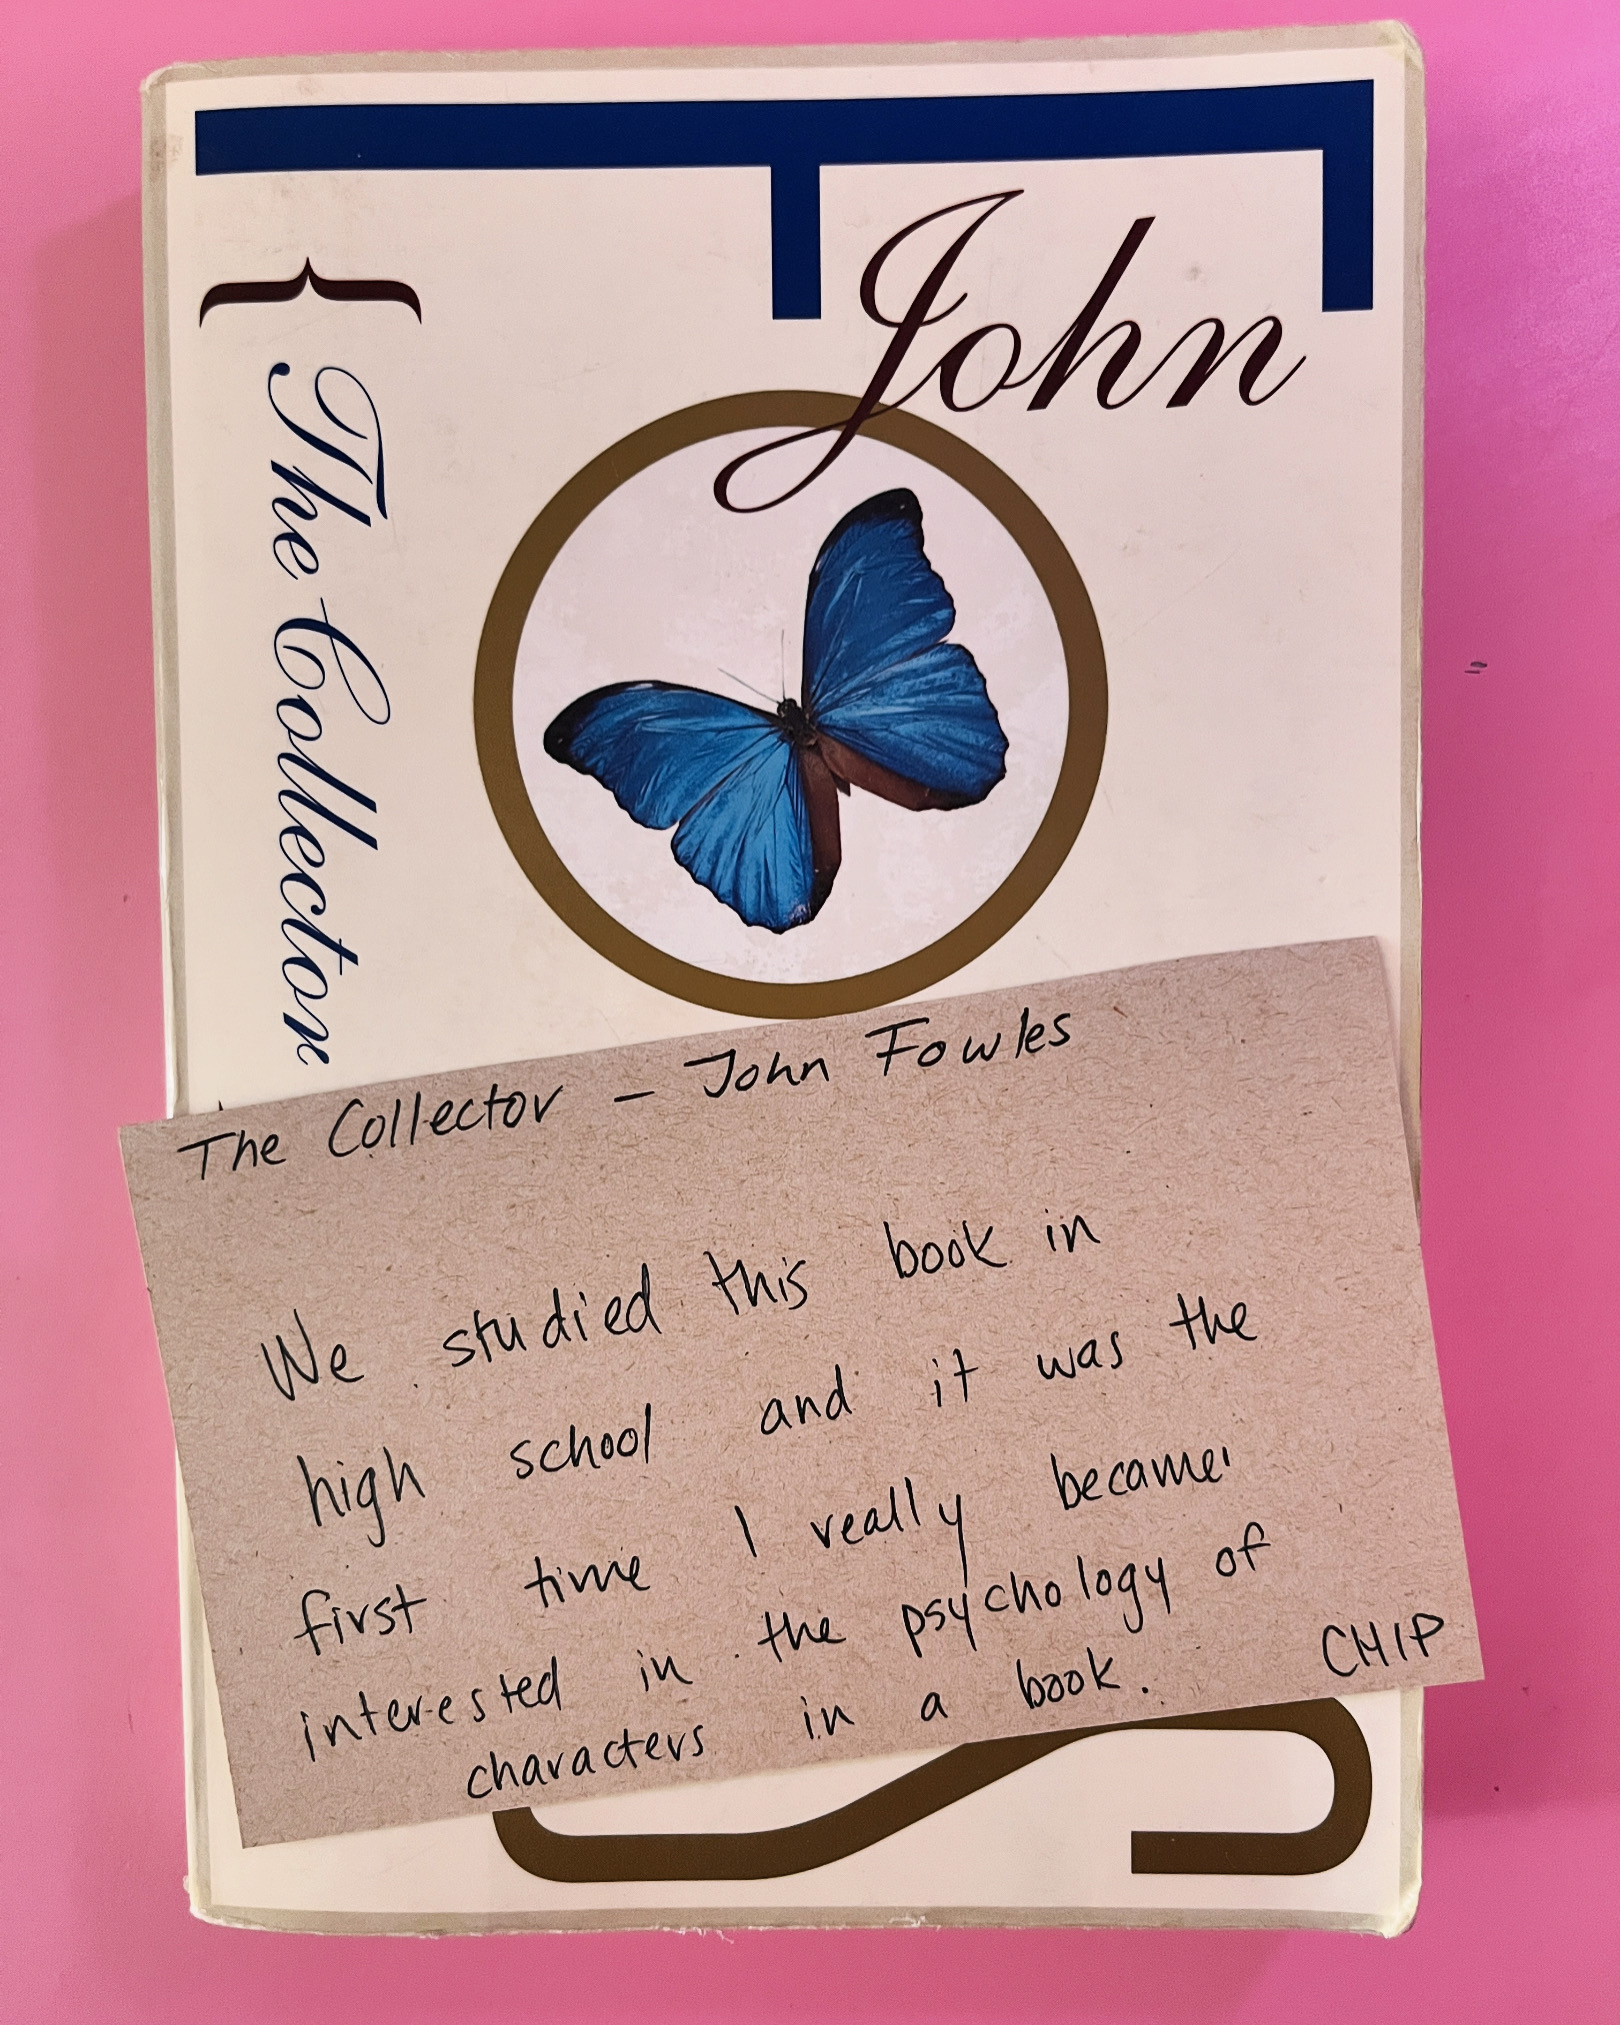 John
{ The Collector
The Collector – John Fowles
We studied this book in
high school and it was the
first time I really became
interested in the psychology of
characters in a book.
CHIP